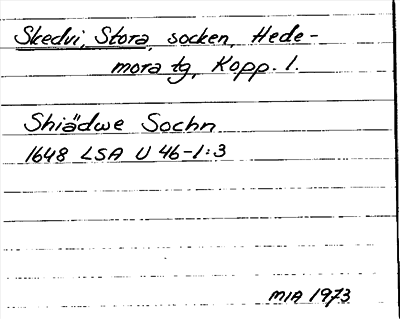 Skedvi, Stora, socken, Hede-
mora tg, Kopp. l.
Shiädwe Sochn
1648 LSA U 46-1:3
MIA 1973